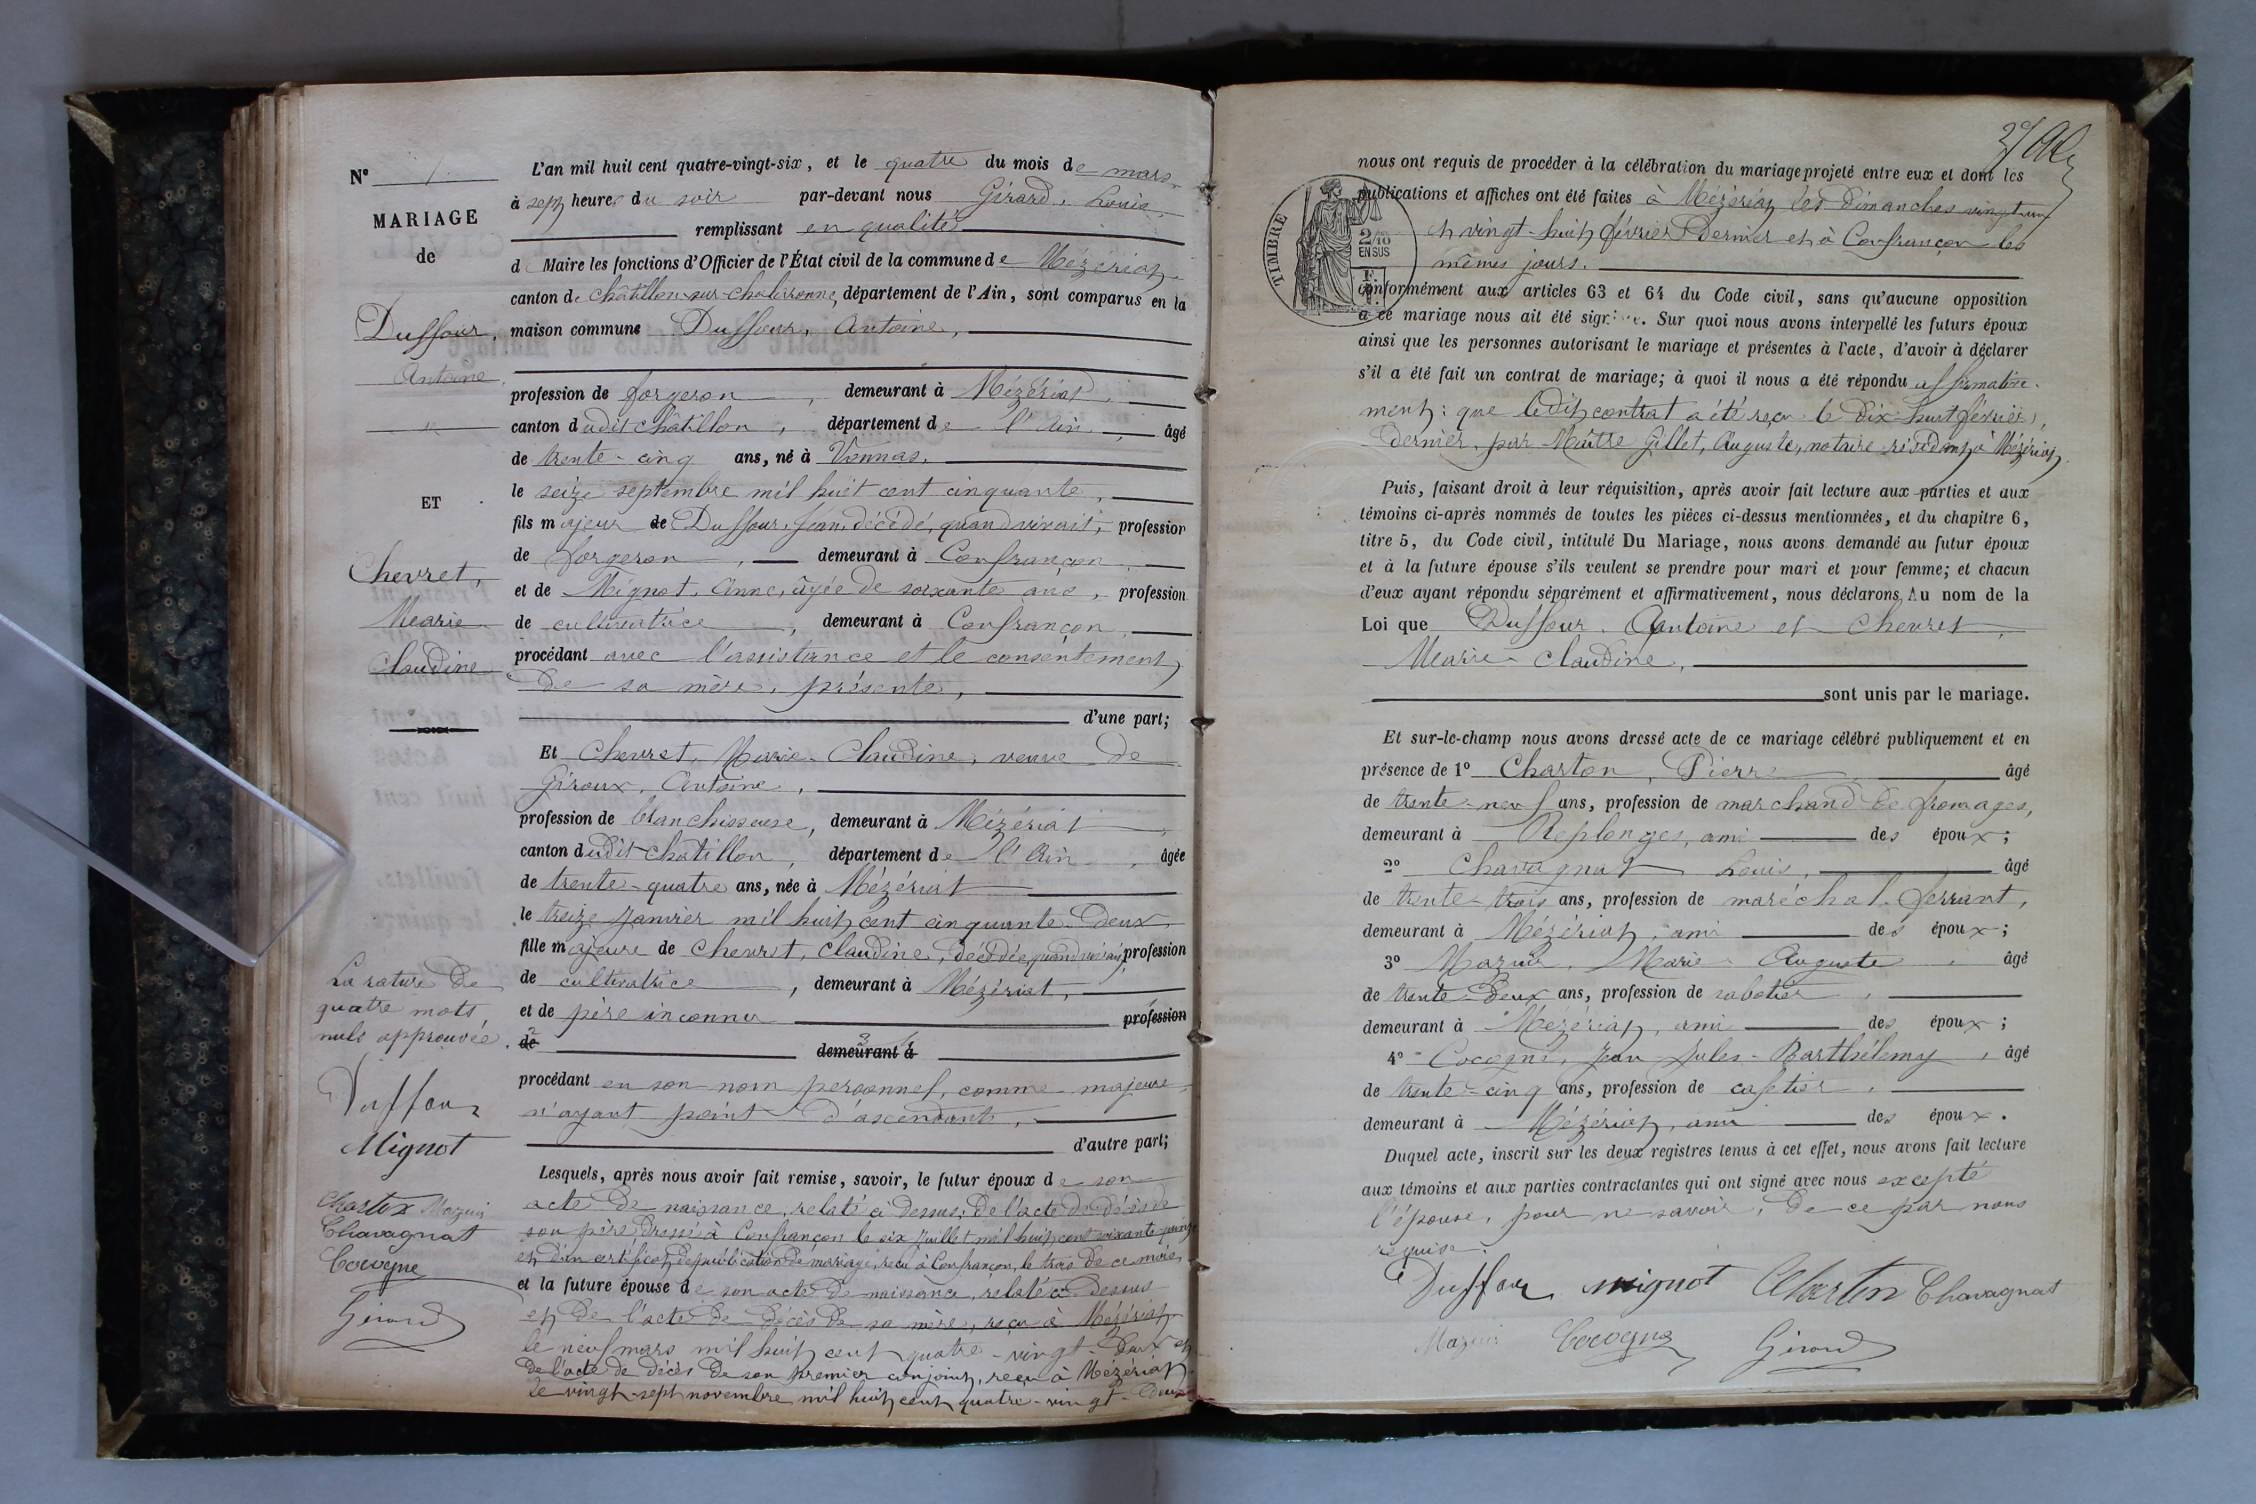 N° 1
MARIAGE
de
Duffour,
Antoine
"
ET
Chevret,
Marie
Claudine
La rature de
quatre mots
nuls approuvée.
Duffour
Mignot
Charton Mazuir
Chavagnat
Cocogne
Girard
L'an mil huit cent quatre-vingt-six, et le quatre du mois de mars
à sept heures du soir par-devant nous Girard, Louis,
remplissant en qualité
d Maire les fonctions d'Officier de l'État civil de la commune de Mézériat
canton de Châtillon-sur-Chalaronne, département de l'Ain, sont comparus en la
maison commune Duffour, Antoine,
profession de forgeron, demeurant à Mézériat,
canton dudit Châtillon, département de l'Ain, âgé
de trente-cinq ans, né à Vonnas,
le seize septembre mil huit cent cinquante,
fils majeur de Duffour, Jean, décédé, quand vivait, profession
de forgeron, demeurant à Confrançon,
et de Mignot, Anne, âgée de soixante ans, profession
de cultivatrice, demeurant à Confrançon,
procédant avec l'assistance et le consentement
de sa mère, présente,
d'une part;
Et Chevret, Marie-Claudine, veuve de
Giroux, Antoine,
profession de blanchisseuse, demeurant à Mézériat,
canton dudit Châtillon, département de l'Ain, âgée
de trente-quatre ans, née à Mézériat
le treize janvier mil huit cent cinquante-deux,
fille majeure de Chevret, Claudine, décédée, quand vivait, profession
de cultivatrice, demeurant à Mézériat,
et de père inconnu profession
de demeurant à
procédant en son nom personnel, comme majeure
n'ayant point d'ascendants,
d'autre part;
Lesquels, après nous avoir fait remise, savoir, le futur époux de son
acte de naissance, relaté ci-dessus, de l'acte de décès de
son père dressé à Confrançon le six juillet mil huit cent soixante-quinze
et d'un certificat de publication de mariage, reçu à Confrançon, le trois de ce mois,
et la future épouse de son acte de naissance, relaté ci-dessus
et de l'acte de décès de sa mère, reçu à Mézériat
le neuf mars mil huit cent quatre-vingt-deux et
de l'acte de décès de son premier conjoint, reçu à Mézériat
le vingt-sept novembre mil huit cent quatre-vingt-deux
TIMBRE
2/10
EN SUS
nous ont requis de procéder à la célébration du mariage projeté entre eux et dont les
publications et affiches ont été faites à Mézériat les dimanches vingt-un
et vingt-huit février dernier et à Confrançon les
mêmes jours.
conformément aux articles 63 et 64 du Code civil, sans qu'aucune opposition
à ce mariage nous ait été signifiée. Sur quoi nous avons interpellé les futurs époux
ainsi que les personnes autorisant le mariage et présentes à l'acte, d'avoir à déclarer
s'il a été fait un contrat de mariage; à quoi il nous a été répondu affirmative-
ment: que ledit contrat a été reçu le dix-huit février,
dernier, par Maître Gillet, Auguste, notaire résidant à Mézériat.
Puis, faisant droit à leur réquisition, après avoir fait lecture aux parties et aux
témoins ci-après nommés de toutes les pièces ci-dessus mentionnées, et du chapitre 6,
titre 5, du Code civil, intitulé Du Mariage, nous avons demandé au futur époux
et à la future épouse s'ils veulent se prendre pour mari et pour femme; et chacun
d'eux ayant répondu séparément et affirmativement, nous déclarons Au nom de la
Loi que Duffour, Antoine et Chevret,
Marie-Claudine,
sont unis par le mariage.
Et sur-le-champ nous avons dressé acte de ce mariage célébré publiquement et en
présence de 1° Charton, Pierre âgé
de trente-neuf ans, profession de marchand de fromages,
demeurant à Replonges, ami des époux;
2° Chavagnat Louis, âgé
de trente-trois ans, profession de maréchal-ferrant,
demeurant à Mézériat, ami des époux;
3° Mazuir, Marie-Auguste âgé
de trente-deux ans, profession de sabotier,
demeurant à Mézériat, ami des époux;
4° Cocogne, Jean-Jules-Barthélemy, âgé
de trente-cinq ans, profession de cafetier,
demeurant à Mézériat, ami des époux.
Duquel acte, inscrit sur les deux registres tenus à cet effet, nous avons fait lecture
aux témoins et aux parties contractantes qui ont signé avec nous excepté
l'épouse, pour ne savoir, de ce par nous
requise.
Duffour mignot Charton Chavagnat
Mazuir Cocogne Girard